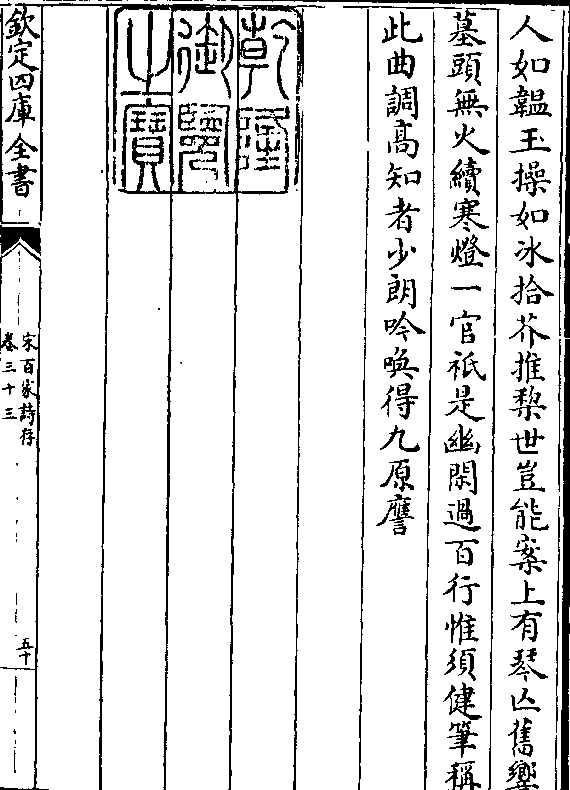 人如韞玉操如冰拾芥推梨世豈能案上有琴亾舊響
墓頭無火續寒燈一官祇是幽閑過百行惟須健筆稱
此曲調髙知者少朗吟喚得九原譍
乾隆
御覽
之寶
欽定四庫全書
宋百家詩存
卷三十三
五十